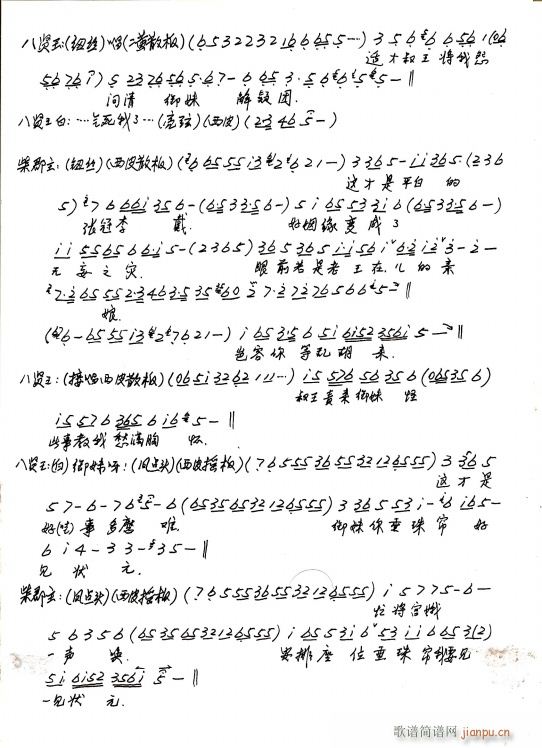 八贤王:(纽丝)唱(二黄散板)(6 5 3 2 2 3 2 1 6 6 6 5 5 ‥‥) 3 5 6 6 6 5 6 1 (06
这才叔王将我怨
5 6 7 6 7) 5 2 3 7 6 5 6 5 · 6 7 – 6 6 5 3 · 5 6 6 5 5 – ‖
问清 御妹 解疑团.
八贤王白: (西皮) (2 3 4 6 5 –)
柴郡主: (纽丝) (西皮散板) (6 6 5 5 5 i 3 2 6 2 1 –) 3 3 6 5 – i i 3 6 5 · (2 3 6
这才是平白 的
5) 7 6 6 6 i 3 5 6 – (6 5 3 3 · 5 6 –) 5 i 6 5 5 3 2 i 6 (6 5 3 3 5 6 –)
张冠李 戴. 好姻缘变成了
i i 5 5 6 5 6 6 i 5 – (2 3 6 5) 3 6 5 3 6 5 i · i 5 6 i 6 · 2 i 2 3 – 2 –
无妄之灾. 眼前若是老王在, 儿的亲
7 · 2 6 5 5 5 2 · 3 4 6 3 · 5 3 5 6 0 2 7 · 2 7 2 7 6 5 6 6 5 – ‖
娘.
(6 – 6 5 5 5 i 3 2 7 6 2 1 –) i 6 5 3 · 5 6 5 i 6 i 5 2 3 5 6 i 5 – ‖
岂容你等乱胡来.
八贤王: (接唱西皮散板) (0 6 5 i 3 2 6 2 1 1 1 ‥‥) i 5 5 7 6 5 6 3 5 6 (0 6 5 3 5 6)
叔王责来御妹怪
i 5 5 7 6 3 6 5 6 i 6 5 – ‖
此事教我愁满胸 怀.
八贤王:(白)御妹呀: (凤点头)(西皮摇板) (7 6 5 5 5 3 6 5 5 3 2 1 2 6 5 5 5) 3 3 6 5
这才是
5 7 – 6 – 7 6 5 – 6 (6 5 3 5 6 5 3 2 1 2 6 5 5 5) 3 3 6 5 5 3 i – 6 i 6 5 –
好(吔)事多磨难 御妹你垂珠帘好
6 i 4 – 3 3 – 3 5 – ‖
见状元.
柴郡主: (凤点头)(西皮摇板) (7 6 5 5 5 3 6 5 5 3 2 1 2 6 5 5 5) i 5 7 7 5 – 6 –
忙将宫娥
5 6 3 5 6 (6 5 3 5 6 5 3 2 1 2 6 5 5 5) i 6 5 3 i 6 5 3 i i 6 6 5 3 (2)
一声唤. 安排座位垂珠帘我要见
5 i 6 i 5 2 3 5 6 i 5 – ‖
一见状元.
歌谱简谱网
jianpu.cn